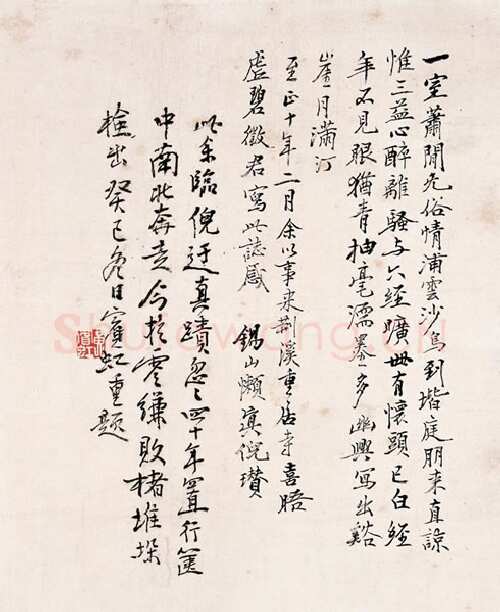 一室蕭閒无俗情浦雲沙鳥到堦庭朋来直諒
惟三益心醉離騷与六經曠世有懷頭已白經
年不見眼猶青抽毫濡墨多幽興寫出谿
崖月滿汀
至正十年二月余以事来荆溪重居寺喜晤
虛碧徵君寫此誌感 錫山懶倪瓚
此余臨倪迂真蹟忽々四十年置行篋
中南北奔走今於零縑敗楮堆垛
檢出癸巳冬日賓虹重題